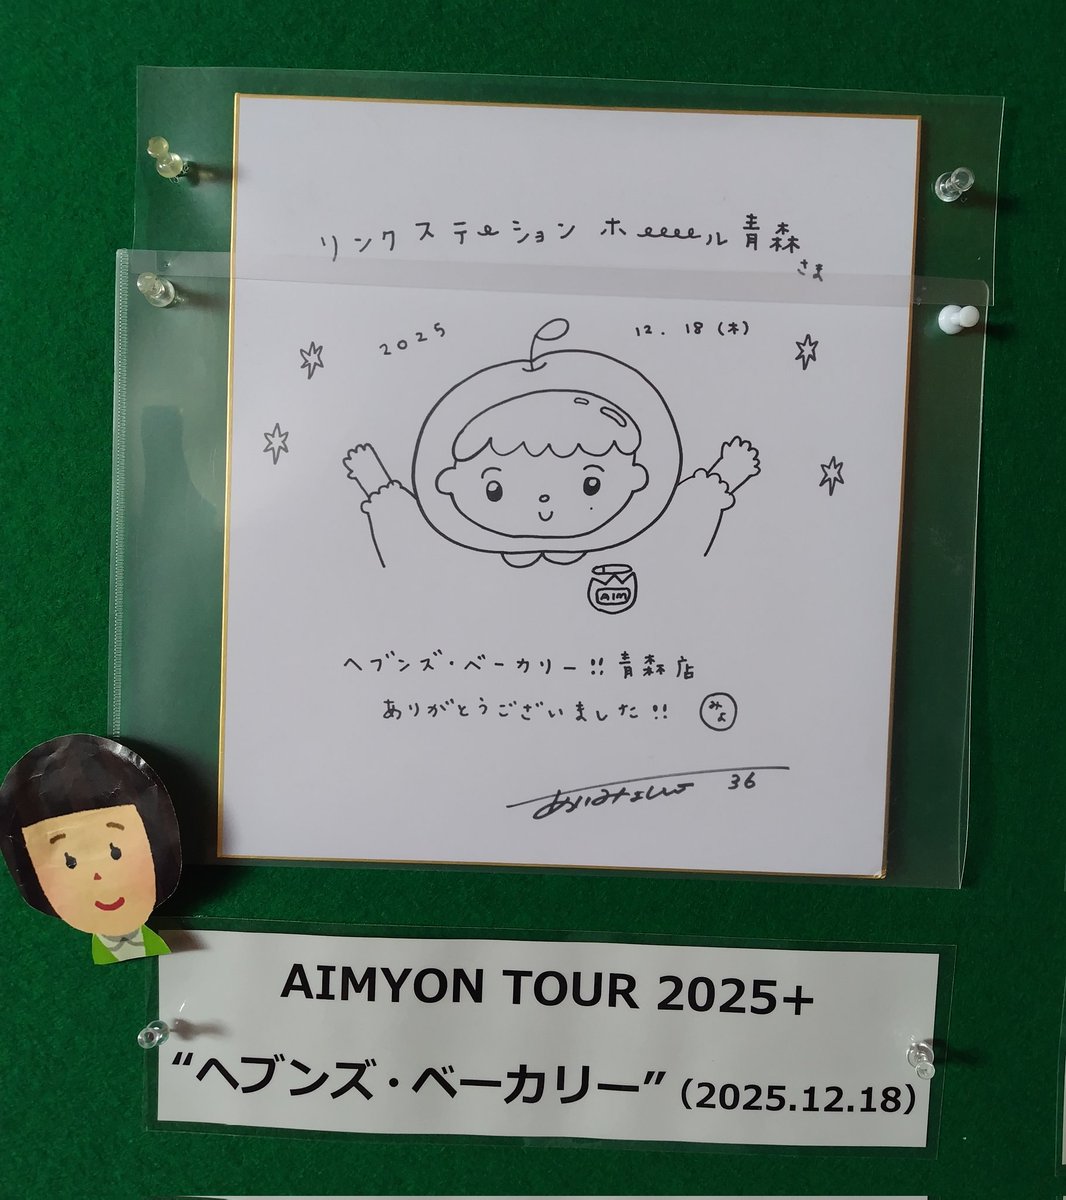 リンクステーションホール青森
さま
2025 12.18(木)
AIM
ヘブンズ・ベーカリー!!青森店
ありがとうございました!! みよ
あいみょん 36
AIMYON TOUR 2025+
“ヘブンズ・ベーカリー”（2025.12.18）